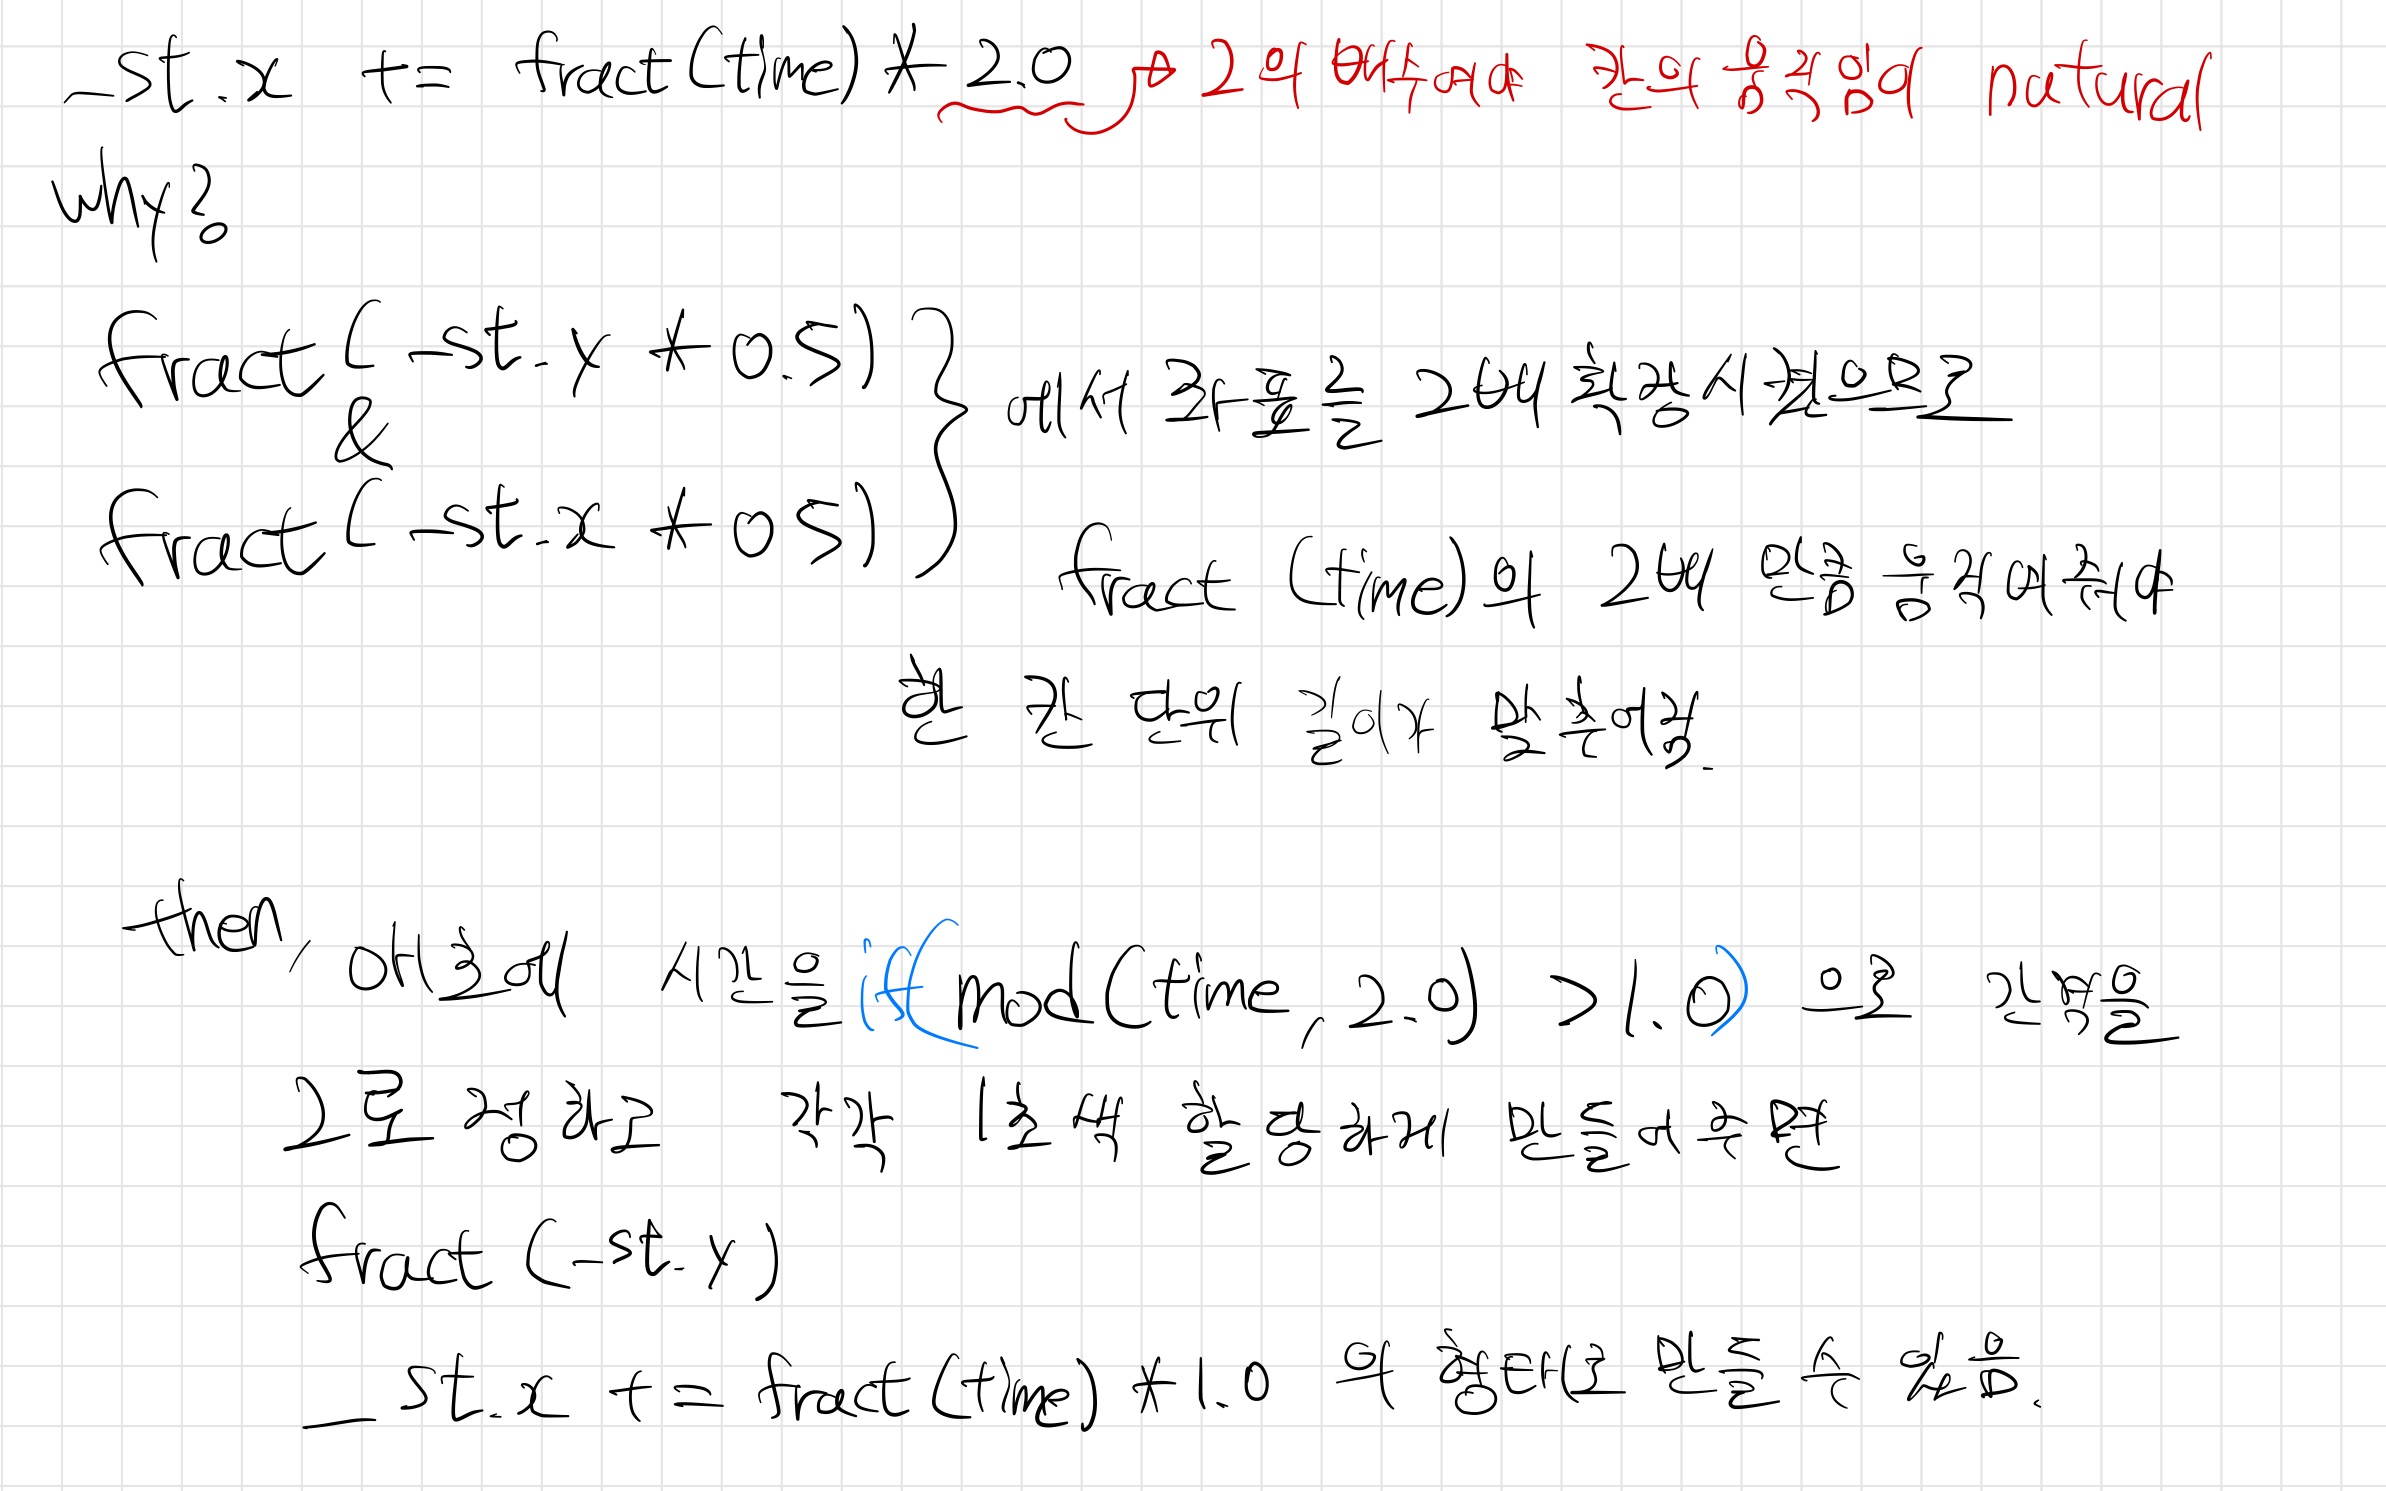 _st.x += fract(time)*2.0 → 2의 배수여야 칸의 움직임이 natural
why?
fract(-st.y * 0.5)
&
fract(-st.x * 0.5)
에서 좌표를 2배 확장시켰으므로
fract (time)의 2배 만큼 움직여줘야
한 칸 단위 길이가 맞추어짐.
then, 애초에 시간을 if(mod(time, 2.0) > 1.0) 으로 간격을
2로 정하고 각각 1초씩 할당하게 만들어주면
fract (-st.y)
_st.x += fract(time) * 1.0 의 형태로 만들 수 있음.